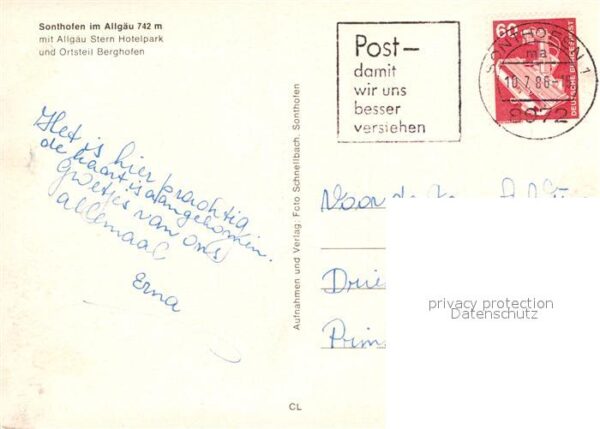 Sonthofen im Allgäu 742 m
mit Allgäu Stern Hotelpark
und Ortsteil Berghofen
Post—
damit
wir uns
besser
verstehen
60
DEUTSCHE BUNDESPOST
SONTHOFEN 1
ma
10.7.86-1
8972
Het is hier prachtig
de kaart is aangekomen.
groetjes van ons
allemaal
Erna
Aufnahmen und Verlag: Foto Schnellbach, Sonthofen
Drie
Prins
privacy protection
Datenschutz
CL